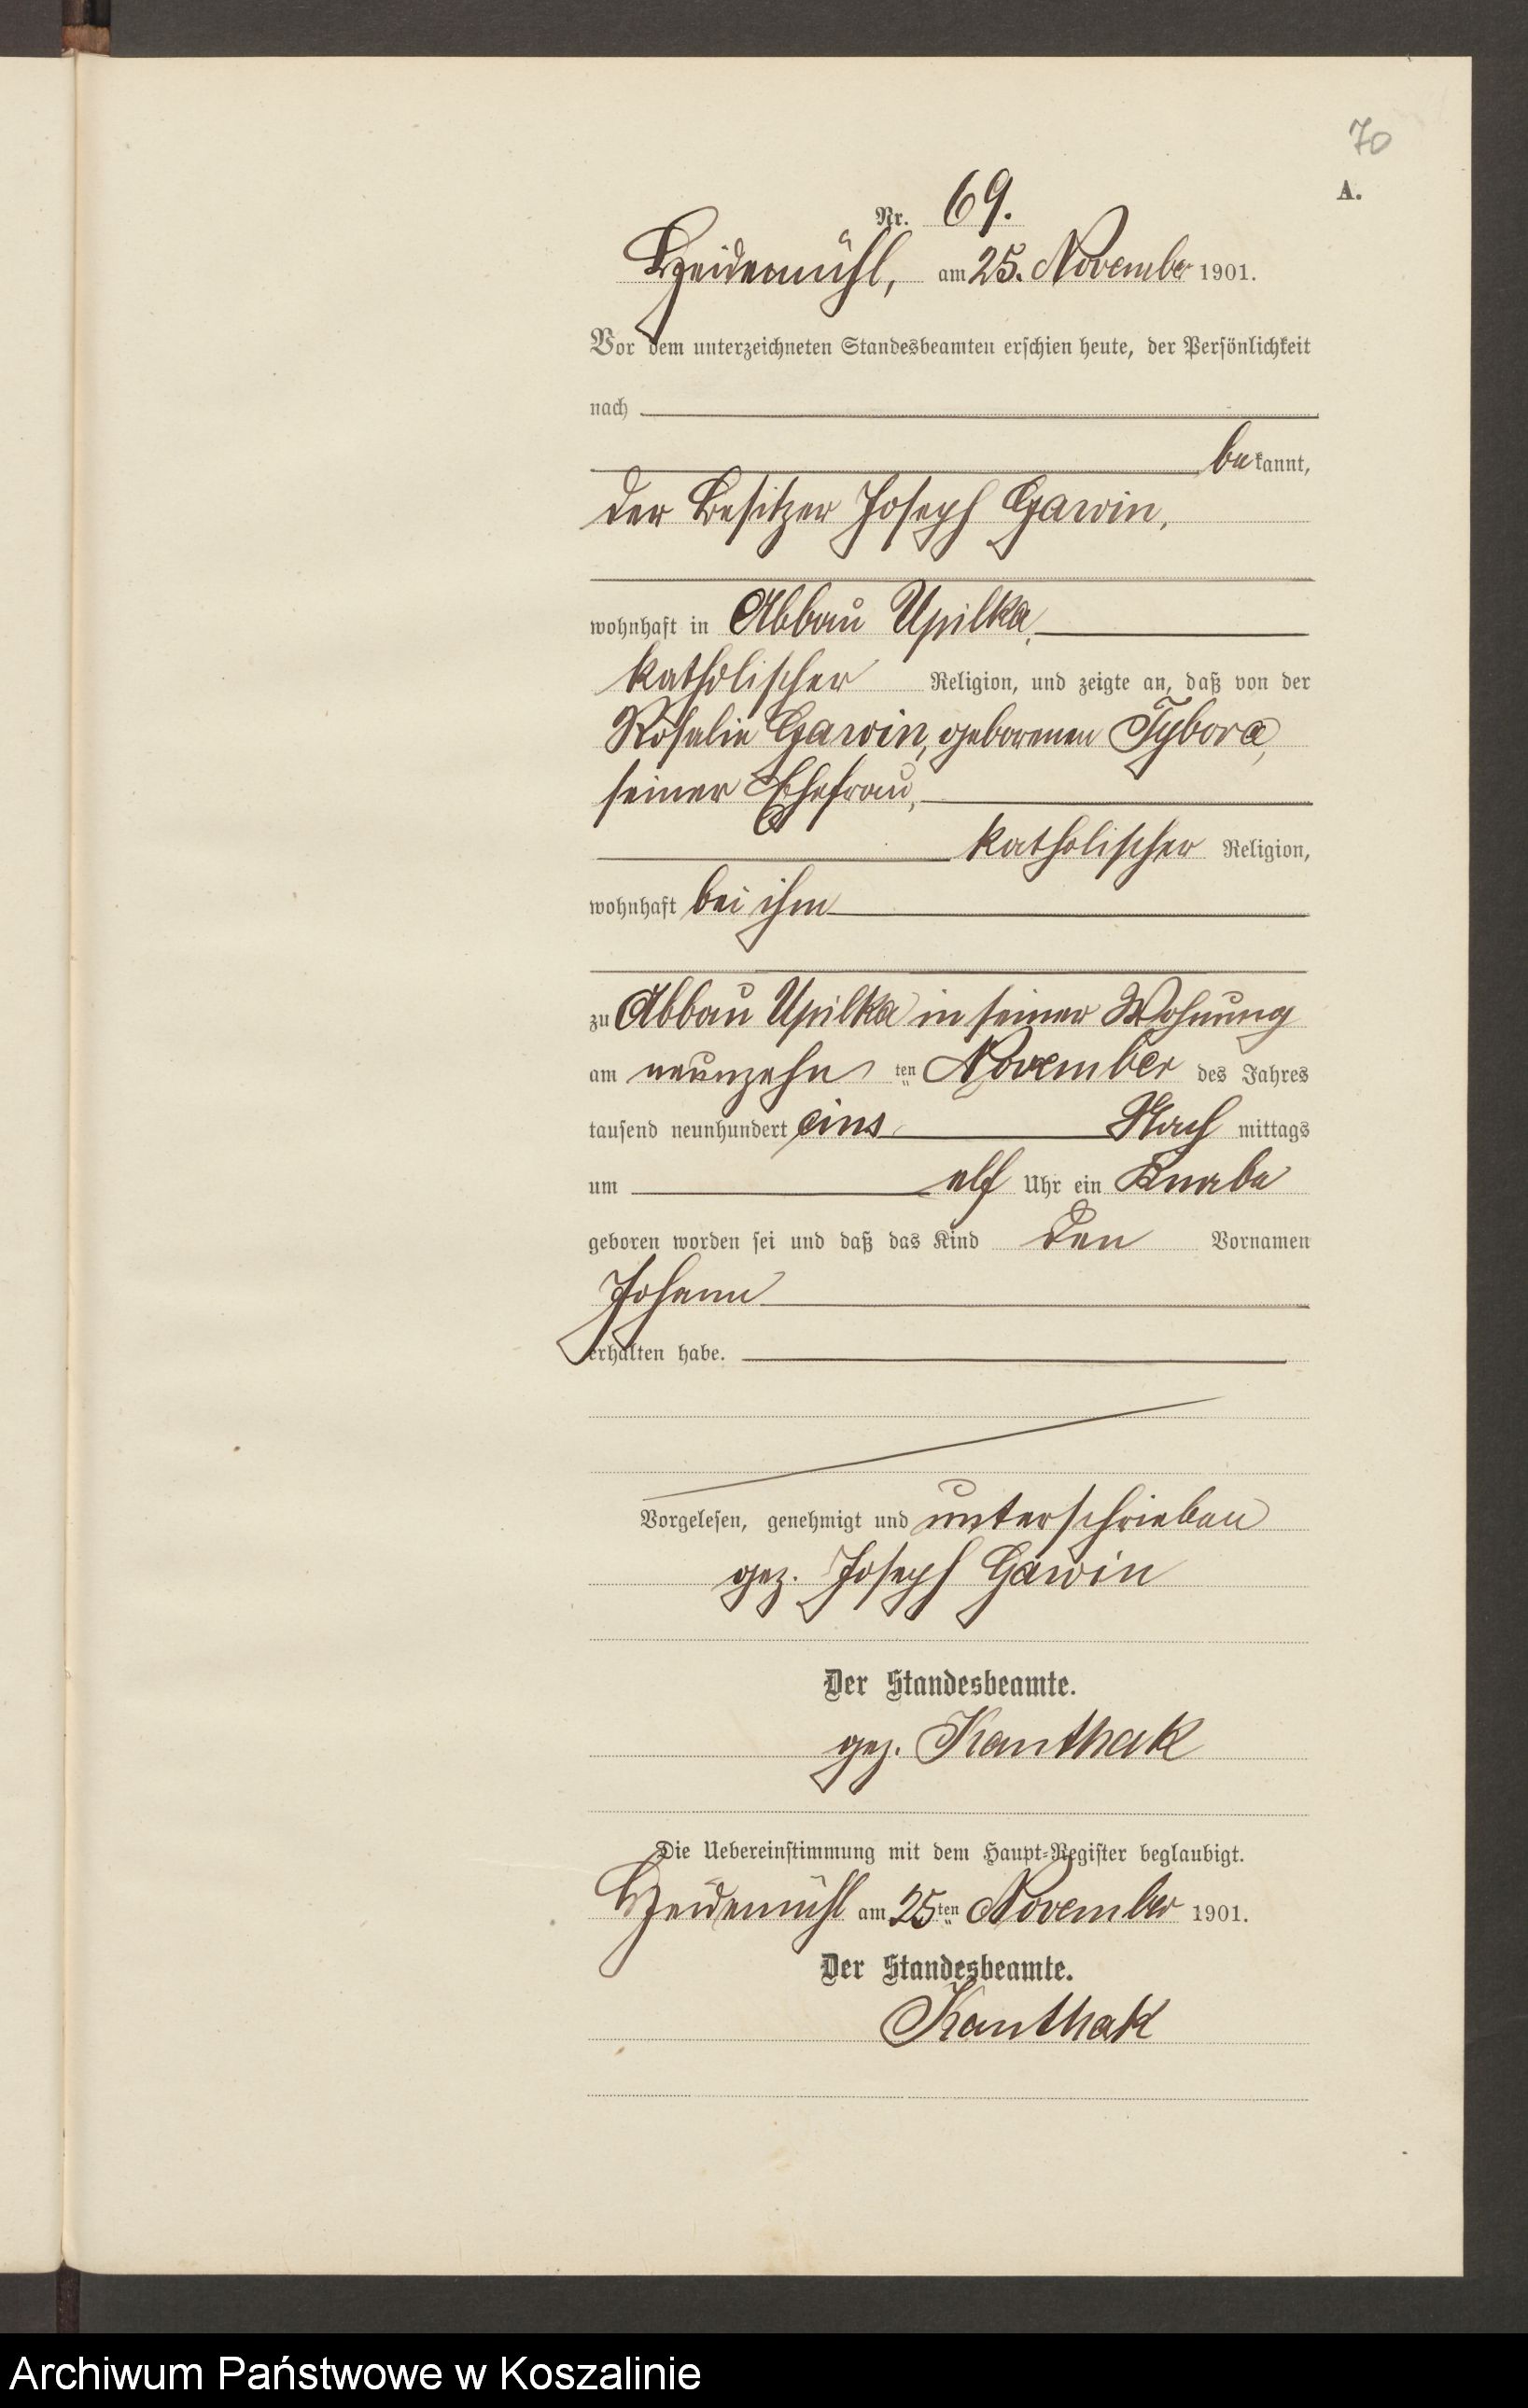 70
A.
Nr. 69.
Heidemühl, am 25. November 1901.
Vor dem unterzeichneten Standesbeamten erschien heute, der Persönlichkeit
nach
be kannt,
der Besitzer Joseph Gawin,
wohnhaft in Abbau Upilka,
katholischer Religion, und zeigte an, daß von der
Rosalie Gawin, geborenen Tybora,
seiner Ehefrau,
katholischer Religion,
wohnhaft bei ihm
zu Abbau Upilka in seiner Wohnung
am neunzehn ten November des Jahres
tausend neunhundert eins Nach mittags
um elf Uhr ein Knabe
geboren worden sei und daß das Kind den Vornamen
Johann
erhalten habe.
Vorgelesen, genehmigt und unterschrieben
gez. Joseph Gawin
Der Standesbeamte.
gez. Kanthak
Die Uebereinstimmung mit dem Haupt-Register beglaubigt.
Heidemühl am 25ten November 1901.
Der Standesbeamte.
Kanthak
Archiwum Państwowe w Koszalinie